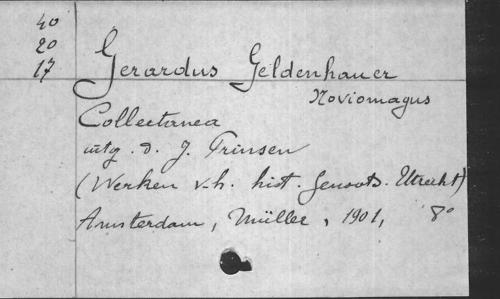 40
20
17
Gerardus Geldenhauer
Noviomagus
Collectanea
uitg. d. J. Prinsen
(Werken v. h. hist. Genoots. Utrecht)
Amsterdam, Müller, 1901, 8°